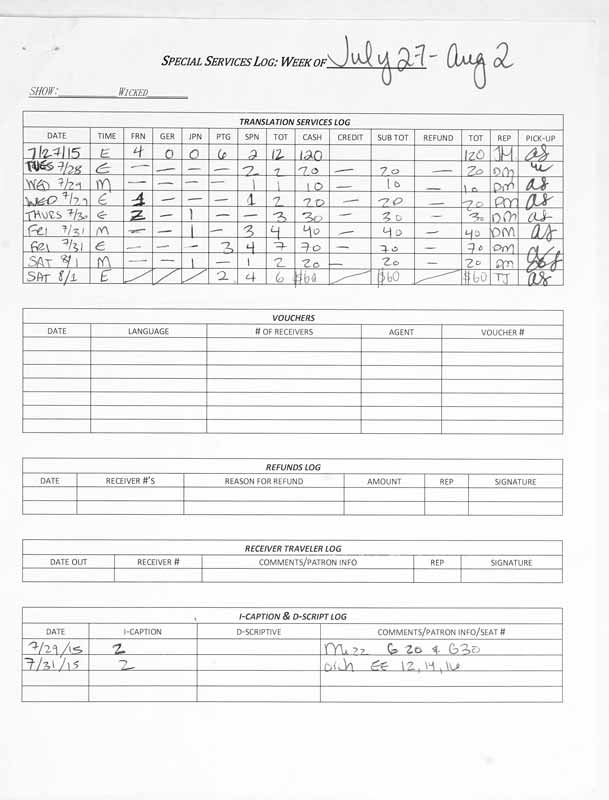 SPECIAL SERVICES LOG: WEEK OF July 27 - Aug 2
SHOW: WICKED
TRANSLATION SERVICES LOG
DATE TIME FRN GER JPN PTG SPN TOT CASH CREDIT SUB TOT REFUND TOT REP PICK-UP
7/27/15 E 4 0 0 6 2 12 120 120 JM as
TUES 7/28 E — — — — 2 2 20 — 20 — 20 DM
WED 7/29 M — — — — 1 1 10 — 10 — 10 DM as
WED 7/29 E 1 — — — 1 2 20 — 20 — 20 DM as
THURS 7/30 E 2 — 1 — — 3 30 — 30 — 30 DM as
FRI 7/31 M — — 1 — 3 4 40 — 40 — 40 DM as
FRI 7/31 E — — — 3 4 7 70 — 70 — 70 DM
SAT 8/1 M — — 1 — 1 2 20 — 20 — 20 DM as
SAT 8/1 E 2 4 6 $60 $60 $60 TJ as
VOUCHERS
DATE LANGUAGE # OF RECEIVERS AGENT VOUCHER #
REFUNDS LOG
DATE RECEIVER #'S REASON FOR REFUND AMOUNT REP SIGNATURE
RECEIVER TRAVELER LOG
DATE OUT RECEIVER # COMMENTS/PATRON INFO REP SIGNATURE
I-CAPTION & D-SCRIPT LOG
DATE I-CAPTION D-SCRIPTIVE COMMENTS/PATRON INFO/SEAT #
7/29/15 2 Mezz G 20 & G30
7/31/15 2 orch EE 12, 14, 16